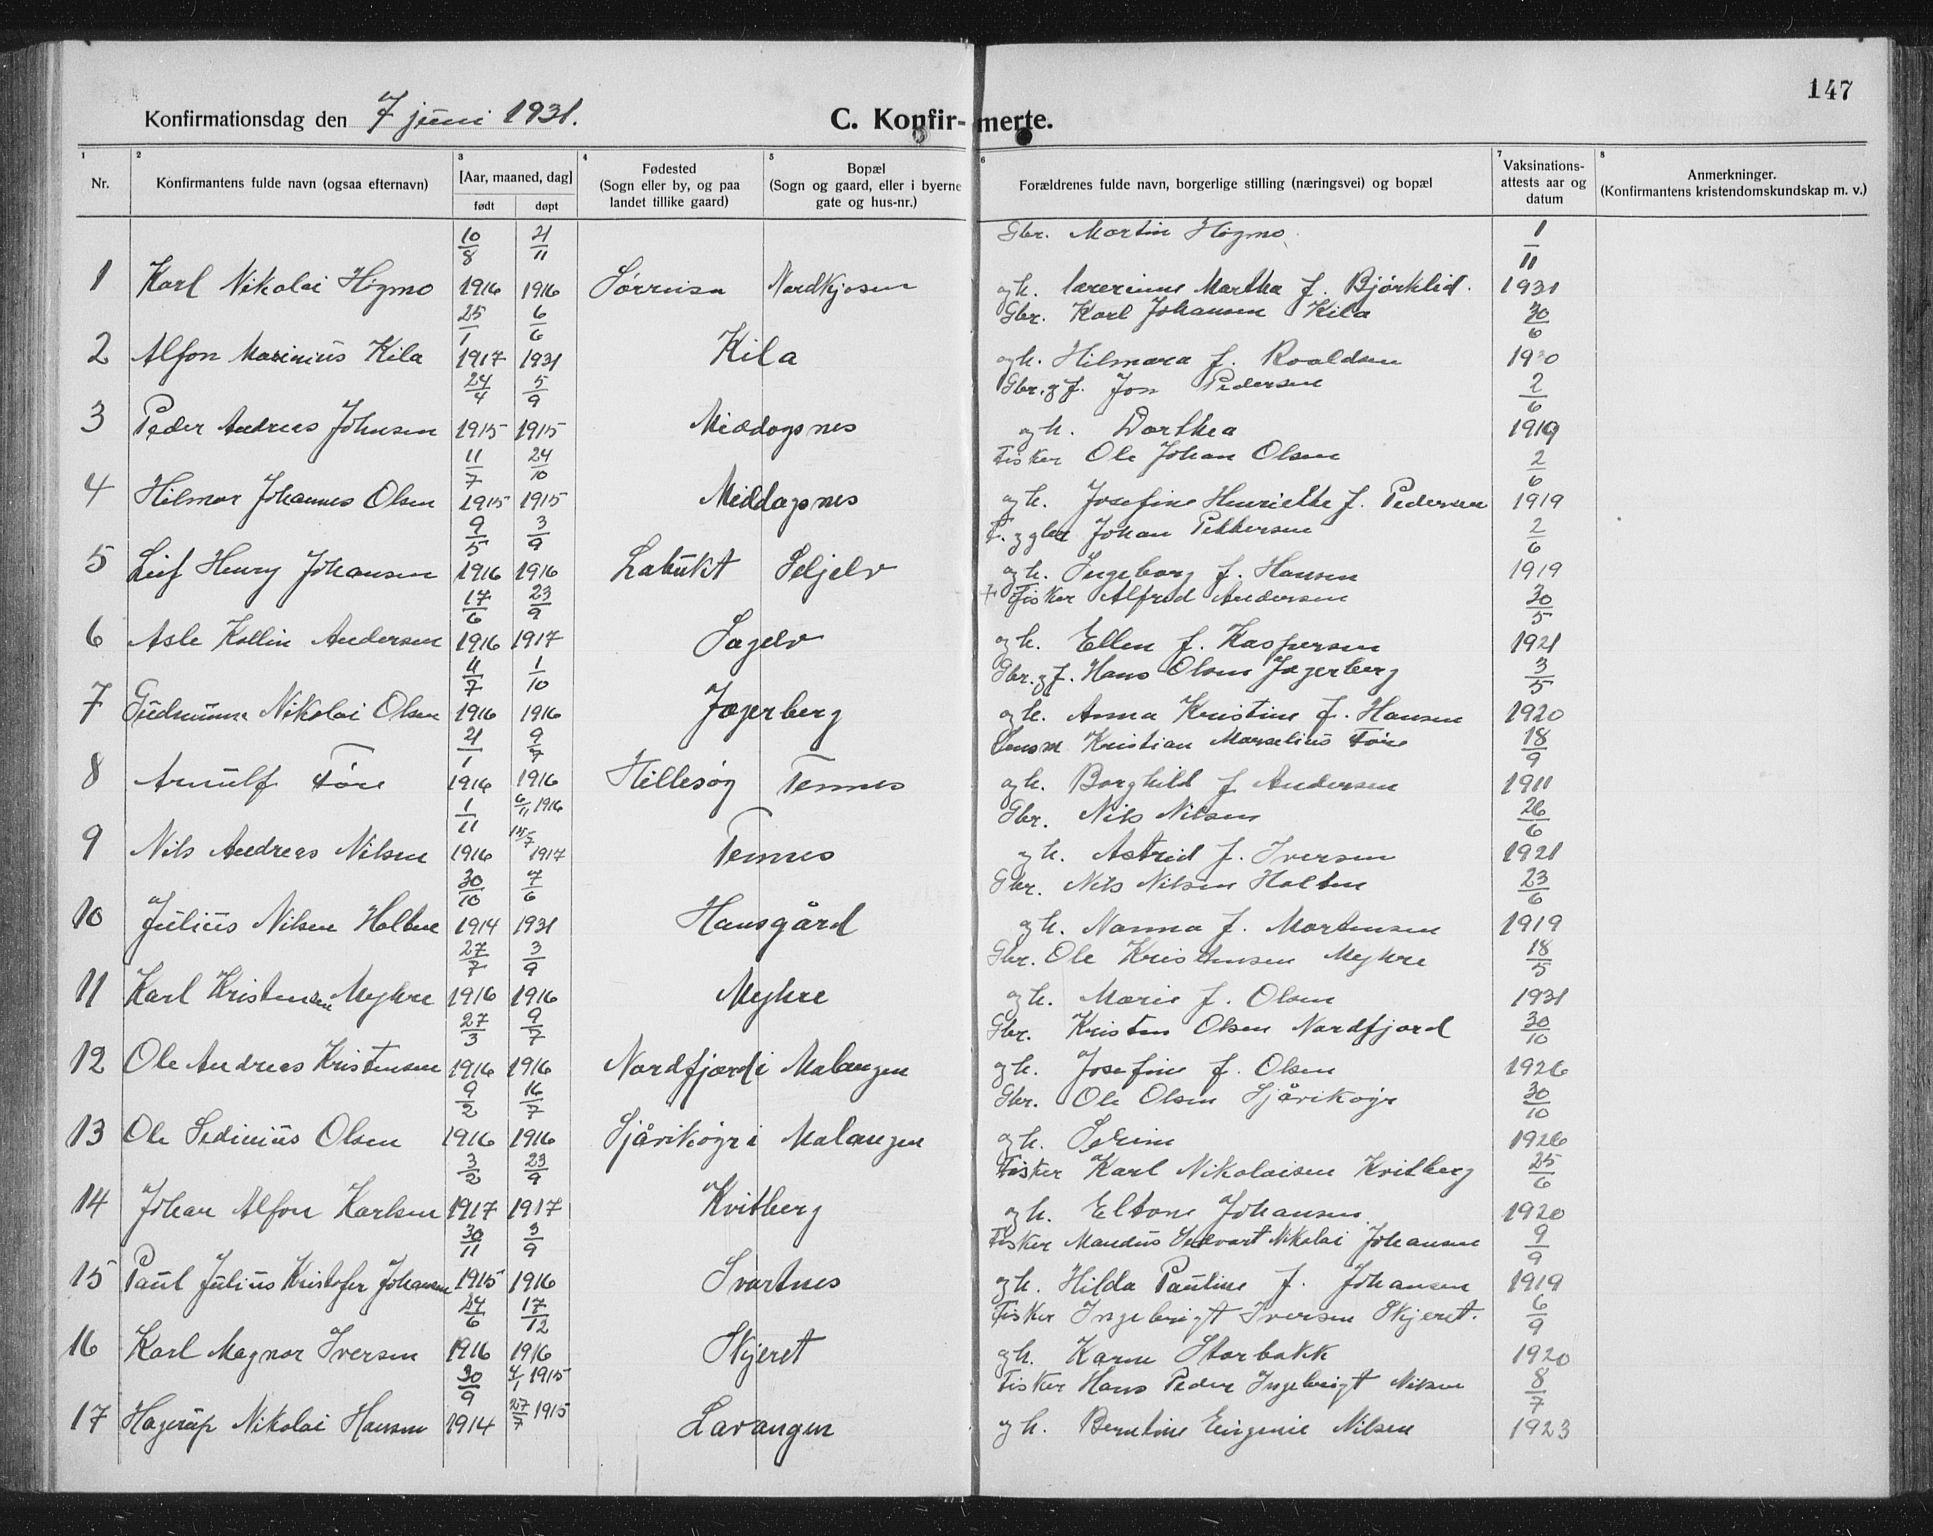 147
Konfirmationsdag den 7 juni 1931.
C. Konfir- merte.
1 2 3 4 5 6 7 8
Nr.
Konfirmantens fulde navn (ogsaa efternavn)
[Aar, maaned, dag]
født døpt
Fødested
(Sogn eller by, og paa
landet tillike gaard)
Bopæl
(Sogn og gaard, eller i byerne
gate og hus-nr.)
Forældrenes fulde navn, borgerlige stilling (næringsvei) og bopæl
Vaksinations-
attests aar og
datum
Anmerkninger.
(Konfirmantens kristendomskundskap m. v.)
10/8 21/11 Gbr. Martin Høgmo 1/11
1 Karl Nikolai Høgmo 1916 1916 Nordkjosen og h. Martha f. Bjørklid. 1931
25/1 6/6 Gbr. Karl Johansen Kila 30/6
2 Alfon Marinius Kila 1917 1931 Kila og h. Hilmara f. Roaldsen 1920
24/4 5/9 Gbr. og f. Jon Pedersen 2/6
3 Peder Andreas Johnsen 1915 1915 Middagsnes og h. Dorthea 1919
11/7 24/10 Fisker Ole Johan Olsen 2/6
4 Hilmar Johannes Olsen 1915 1915 Middagsnes og h. Josefine Henriette f. Pedersen 1919
9/5 3/9 F. og gbr. Johan Pettersen 2/6
5 Leif Henry Johansen 1916 1916 Labukt Seljelv og h. Ingeborg f. Hansen 1919
17/6 23/9 + Fisker Alfred Andersen 30/5
6 Asle Kollin Andersen 1916 1917 Sagelv og h. Ellen f. Kaspersen 1921
4/7 1/10 Gbr. og f. Hans Olsen Jægerberg 3/5
7 Gudmunn Nikolai Olsen 1916 1916 Jægerberg og h. Anna Kristine f. Hansen 1920
21/1 9/7 Lensm Kristian Marselius Føre 18/9
8 Arnulf Føre 1916 1916 Hillesøy Tennes og h. Borghild f Andersen 1911
1/11 6/11 1916 Gbr. Nils Nilsen 26/6
9 Nils Andreas Nilsen 1916 15/7 1917 Tennes og h. Astrid f. Iversen 1921
30/10 7/6 Gbr. Nils Nilsen Holten 23/6
10 Julius Nilsen Holten 1914 1931 Hansgård og h. Nanna f. Mortensen 1919
27/7 3/9 Gbr. Ole Kristensen Myhre 18/5
11 Karl Kristensen Myhre 1916 1916 Myhre og h. Marie f. Olsen 1931
27/3 9/7 Gbr. Kristen Olsen Nordfjord 30/10
12 Ole Andreas Kristensen 1916 1916 Nordfjord i Malangen og h. Josefine f. Olsen 1926
9/2 16/7 Gbr. Ole Olsen Sjåvikøyr 30/10
13 Ole Sedinius Olsen 1916 1916 Sjåvikøyr i Malangen og h. 1926
3/2 23/9 Fisker Karl Nikolaisen Kvitberg 25/6
14 Johan Alfon Karlsen 1917 1917 Kvitberg og h. Eltone Johansen 1920
30/11 3/9 Fisker Mandius Nikolai Johansen 9/9
15 Paul Julius Kristofer Johansen 1915 1916 Svartnes og h. Hilda Pauline f. Johansen 1919
24/6 17/12 Fisker Ingebrigt Iversen Skjeret. 6/9
16 Karl Magnor Iversen 1916 1916 Skjeret og h. Karen Storbakk 1920
30/9 4/1 1915 Fisker Hans Peder Ingebrigt Nilsen 8/7
17 Hagerup Nikolai Hansen 1914 27/7 1915 Lavangen og h. Berntine Eugenie Nilsen 1923